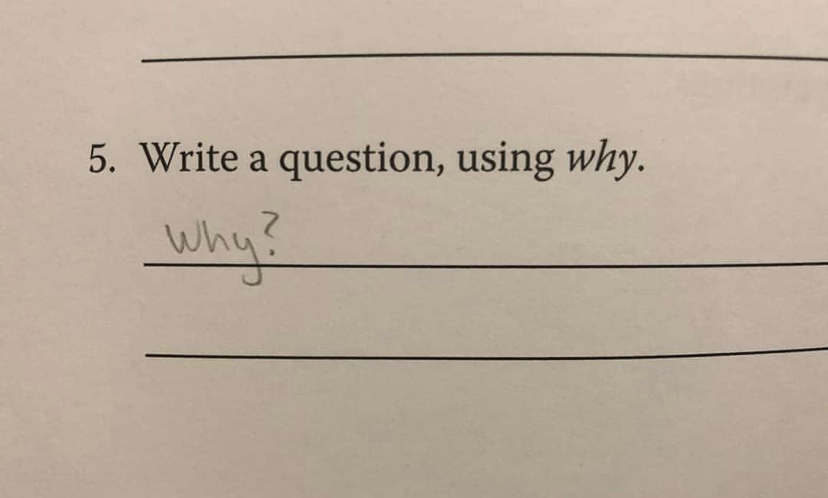 5. Write a question, using why.
Why?